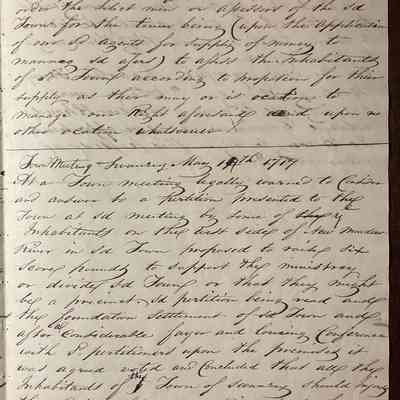 order the Select men or assessors of the sd
Town for the time being (upon the application
of our sd agents for supply of money to
manney sd afors) to assess the inhabitants
of sd Town according to proportion for their
supply as their may or is ocation to
manage our Right aforesaid and upon no
other ocation whatsoever
Town Meeting Swanzey May 19th 1717
At a Town meeting legally warned to Consider
and answer to a petition presented to the
Town at sd meeting by some of the
Inhabitants on the west sides of New Meadow
River in sd Town proposed to raise six
score pounds to support the ministrey
or divide sd Town or that they might
be a precinct sd petition being read and
the foundation settlement of sd Town and
after a Considerable fayor and loueing Conferance
with sd petitioners upon the premises it
was agreed voted and Concluded that all the
Inhabitants of the Town of Swanzey should injoy